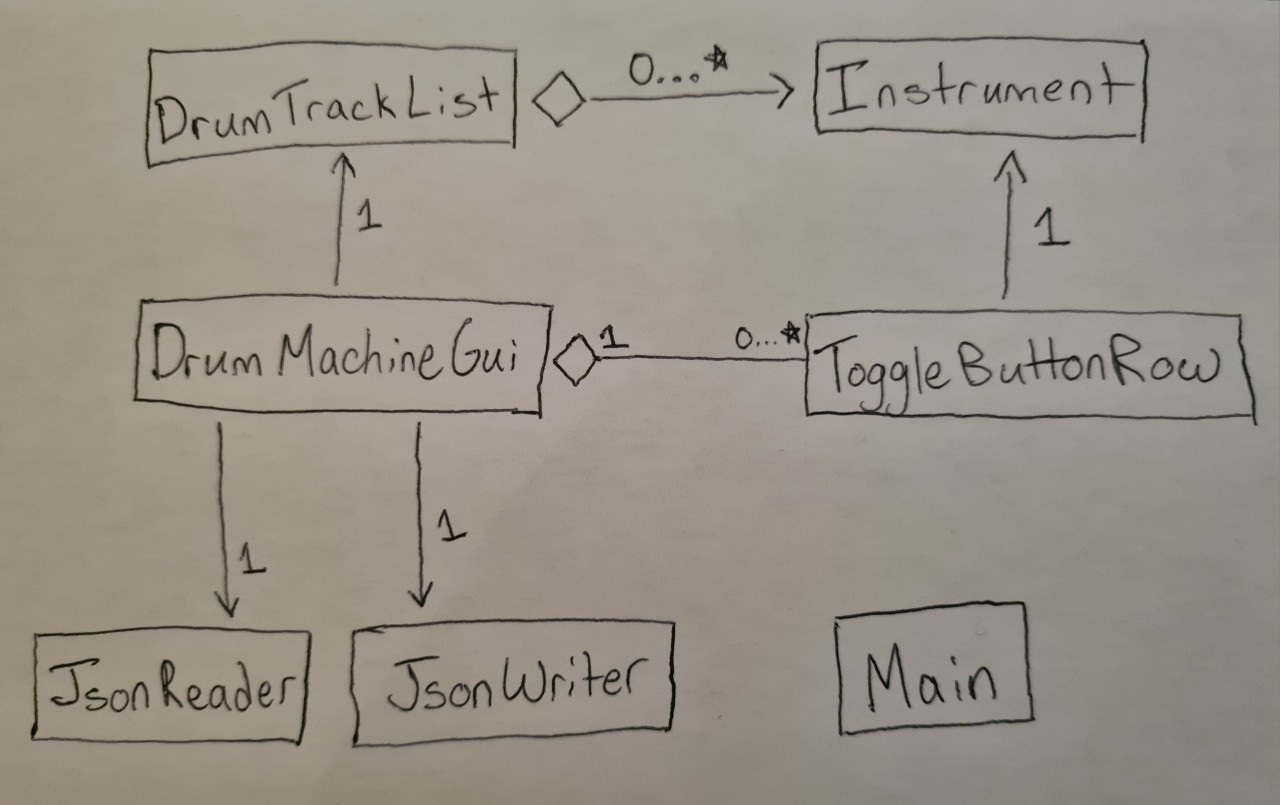 DrumTrackList
0...*
Instrument
1
1
DrumMachineGui
1
0...*
ToggleButtonRow
1
1
JsonReader
JsonWriter
Main